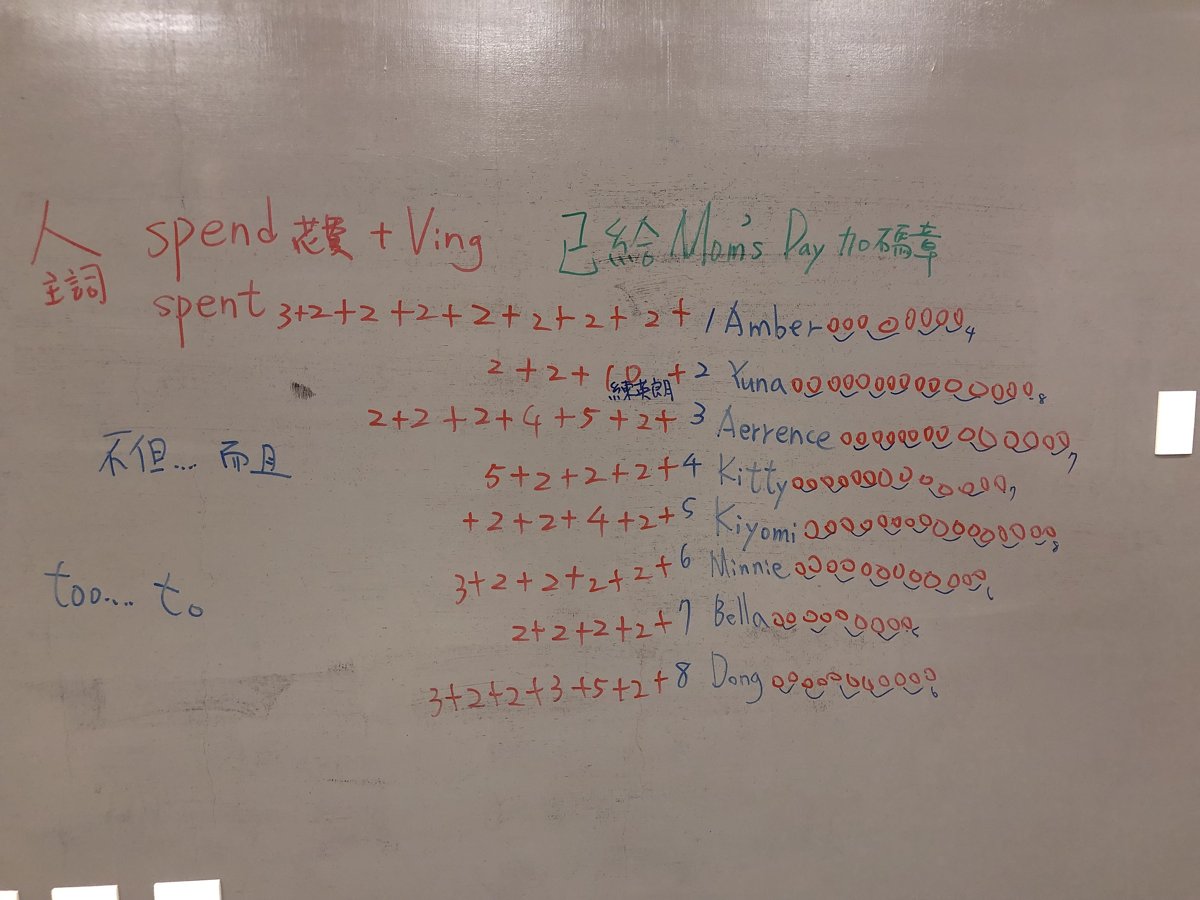 人 spend 花費 + Ving 已給Mom's Day加碼章
主詞
spent 3+2+2+2+2+2+2+2+ 1 Amber 4
2+2+10+2 Yuna 8
練英朗
2+2+2+4+5+2+ 3 Aerrence 7
不但... 而且
5+2+2+2+4 Kitty 7
+2+2+4+2+5 Kiyomi 8
too.... to
3+2+2+2+2+6 Minnie
2+2+2+2+7 Bella
3+2+2+3+5+2+8 Dong 6